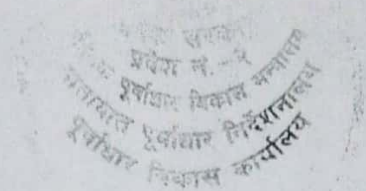 प्रदेश नं. -२
पूर्वाधार विकास मन्त्रालय
यातायात पूर्वाधार निर्देशनालय
पूर्वाधार विकास कार्यालय